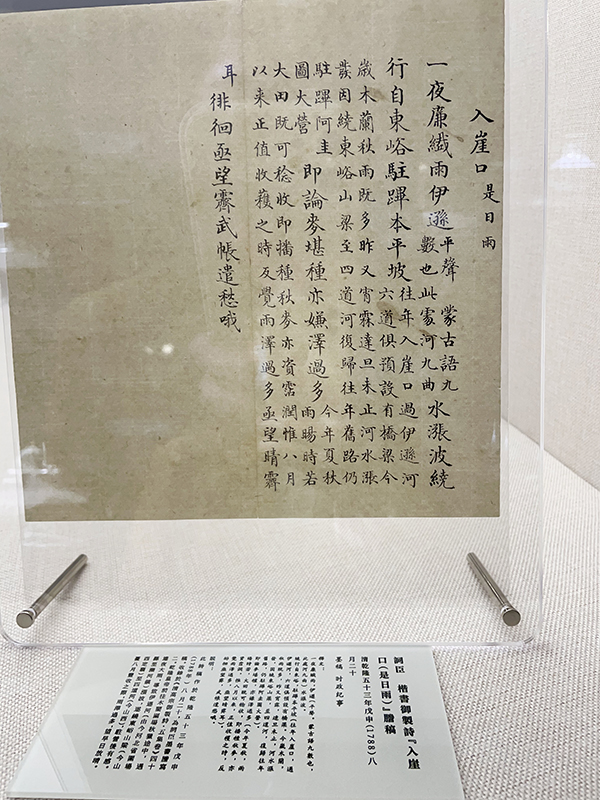 入崖口 是日雨
一夜廉纖雨伊遜 平聲 蒙古語九
數也此處河九曲 水漲波繞
行自東峪駐蹕本平坡 往年入崖口過伊遜河
六道俱預設有橋梁今
歲木蘭秋雨既多昨又宵霖達旦未止河水漲
發因繞東峪山梁至四道河復歸往年舊路仍
駐蹕阿圭
圖大營 即論麥堪種亦嫌澤過多 今年夏秋
雨暘時若
大田既可稔收即播種秋麥亦資霑潤惟八月
以来正值收穫之時反覺雨澤過多亟望晴霽
耳 徘徊亟望霽武帳遣愁哦
詞臣 楷書御製詩『入崖
口(是日雨)』謄稿
清乾隆五十三年戊申(1788)八
月二十
墨稿 時政記事